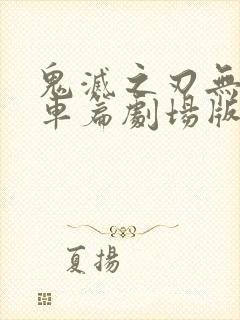 鬼滅之刃無
車篇劇場版
夏揚